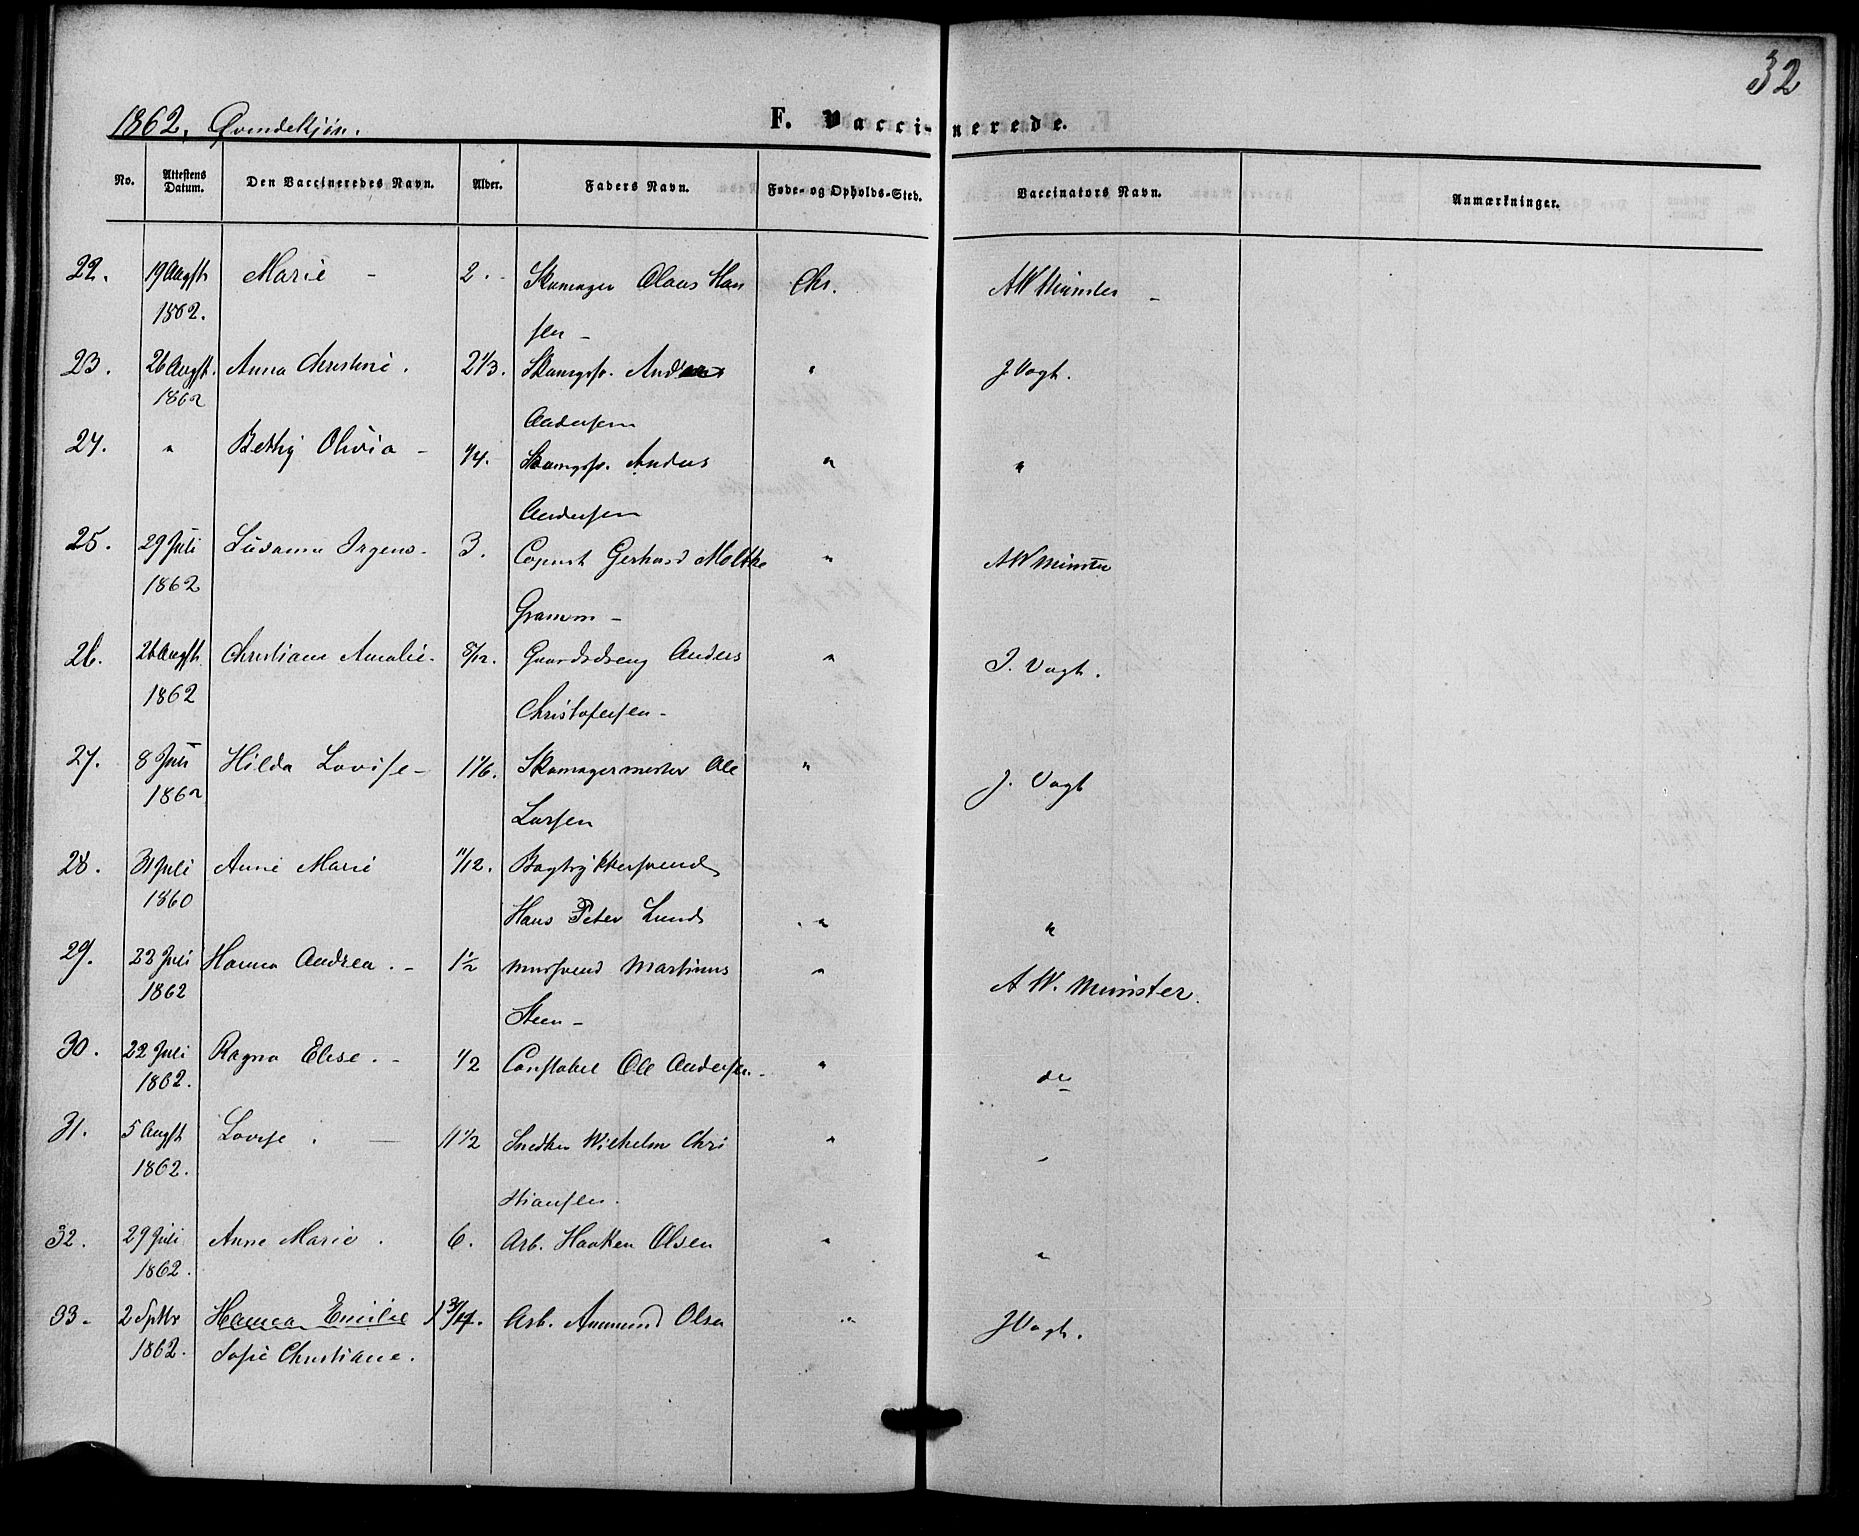 32
1862. Qvindekjøn.
F. Vaccinerede.
No. Attestens Datum. Den Vaccineredes Navn. Alder. Faders Navn. Føde- og Opholds-Sted. Vaccinators Navn. Anmærkninger.
22. 19 Augst Marie - 2. - Skomager Olaus Han Chr. AW Münster -
1862. sen -
23. 26 Augst. Anna Christine. 2 1/3. Skomgsv. Anders " J Vogt.
1862 Andersen
24. " Bethy Olivia - 1/4. Skomgsv. Anders " "
Andersen
25. 29 Juli Susanna Irgens. 3. Copiist Gerhard Moltke " AW Münster
1862 Gramm -
26. 26 Augst. Christiane Amalie. 8/12. Gaardsdreng Anders " J. Vogt.
1862 Christofersen -
27. 8 Juli Hilda Lovise - 1 1/6. Skomagermester Ole " J. Vogt
1862 Larsen
28. 31 Juli Anne Marie 11/12. Bogtrykkersvend
1860 Hans Peter Lund " "
29. 22 Juli Hanna Andrea. - 1 1/2 Mursvend Martinus " A W. Münster.
1862 Steen -
30. 22 Juli Ragna Elise. - 1/2 Constabel Ole Andersen. " do
1862.
31. 5 Augst Lovise. - 11 1/2 Snedker Wilhelm Chri " "
1862. stiansen.
32. 29 Juli Anne Marie. 6. Arb. Haaken Olsen " "
1862.
33. 2 Sptbr Hanna Emilie 1 3/4. Arb. Ammund Olsen " J Vogt.
1862. Sofie Christiane.